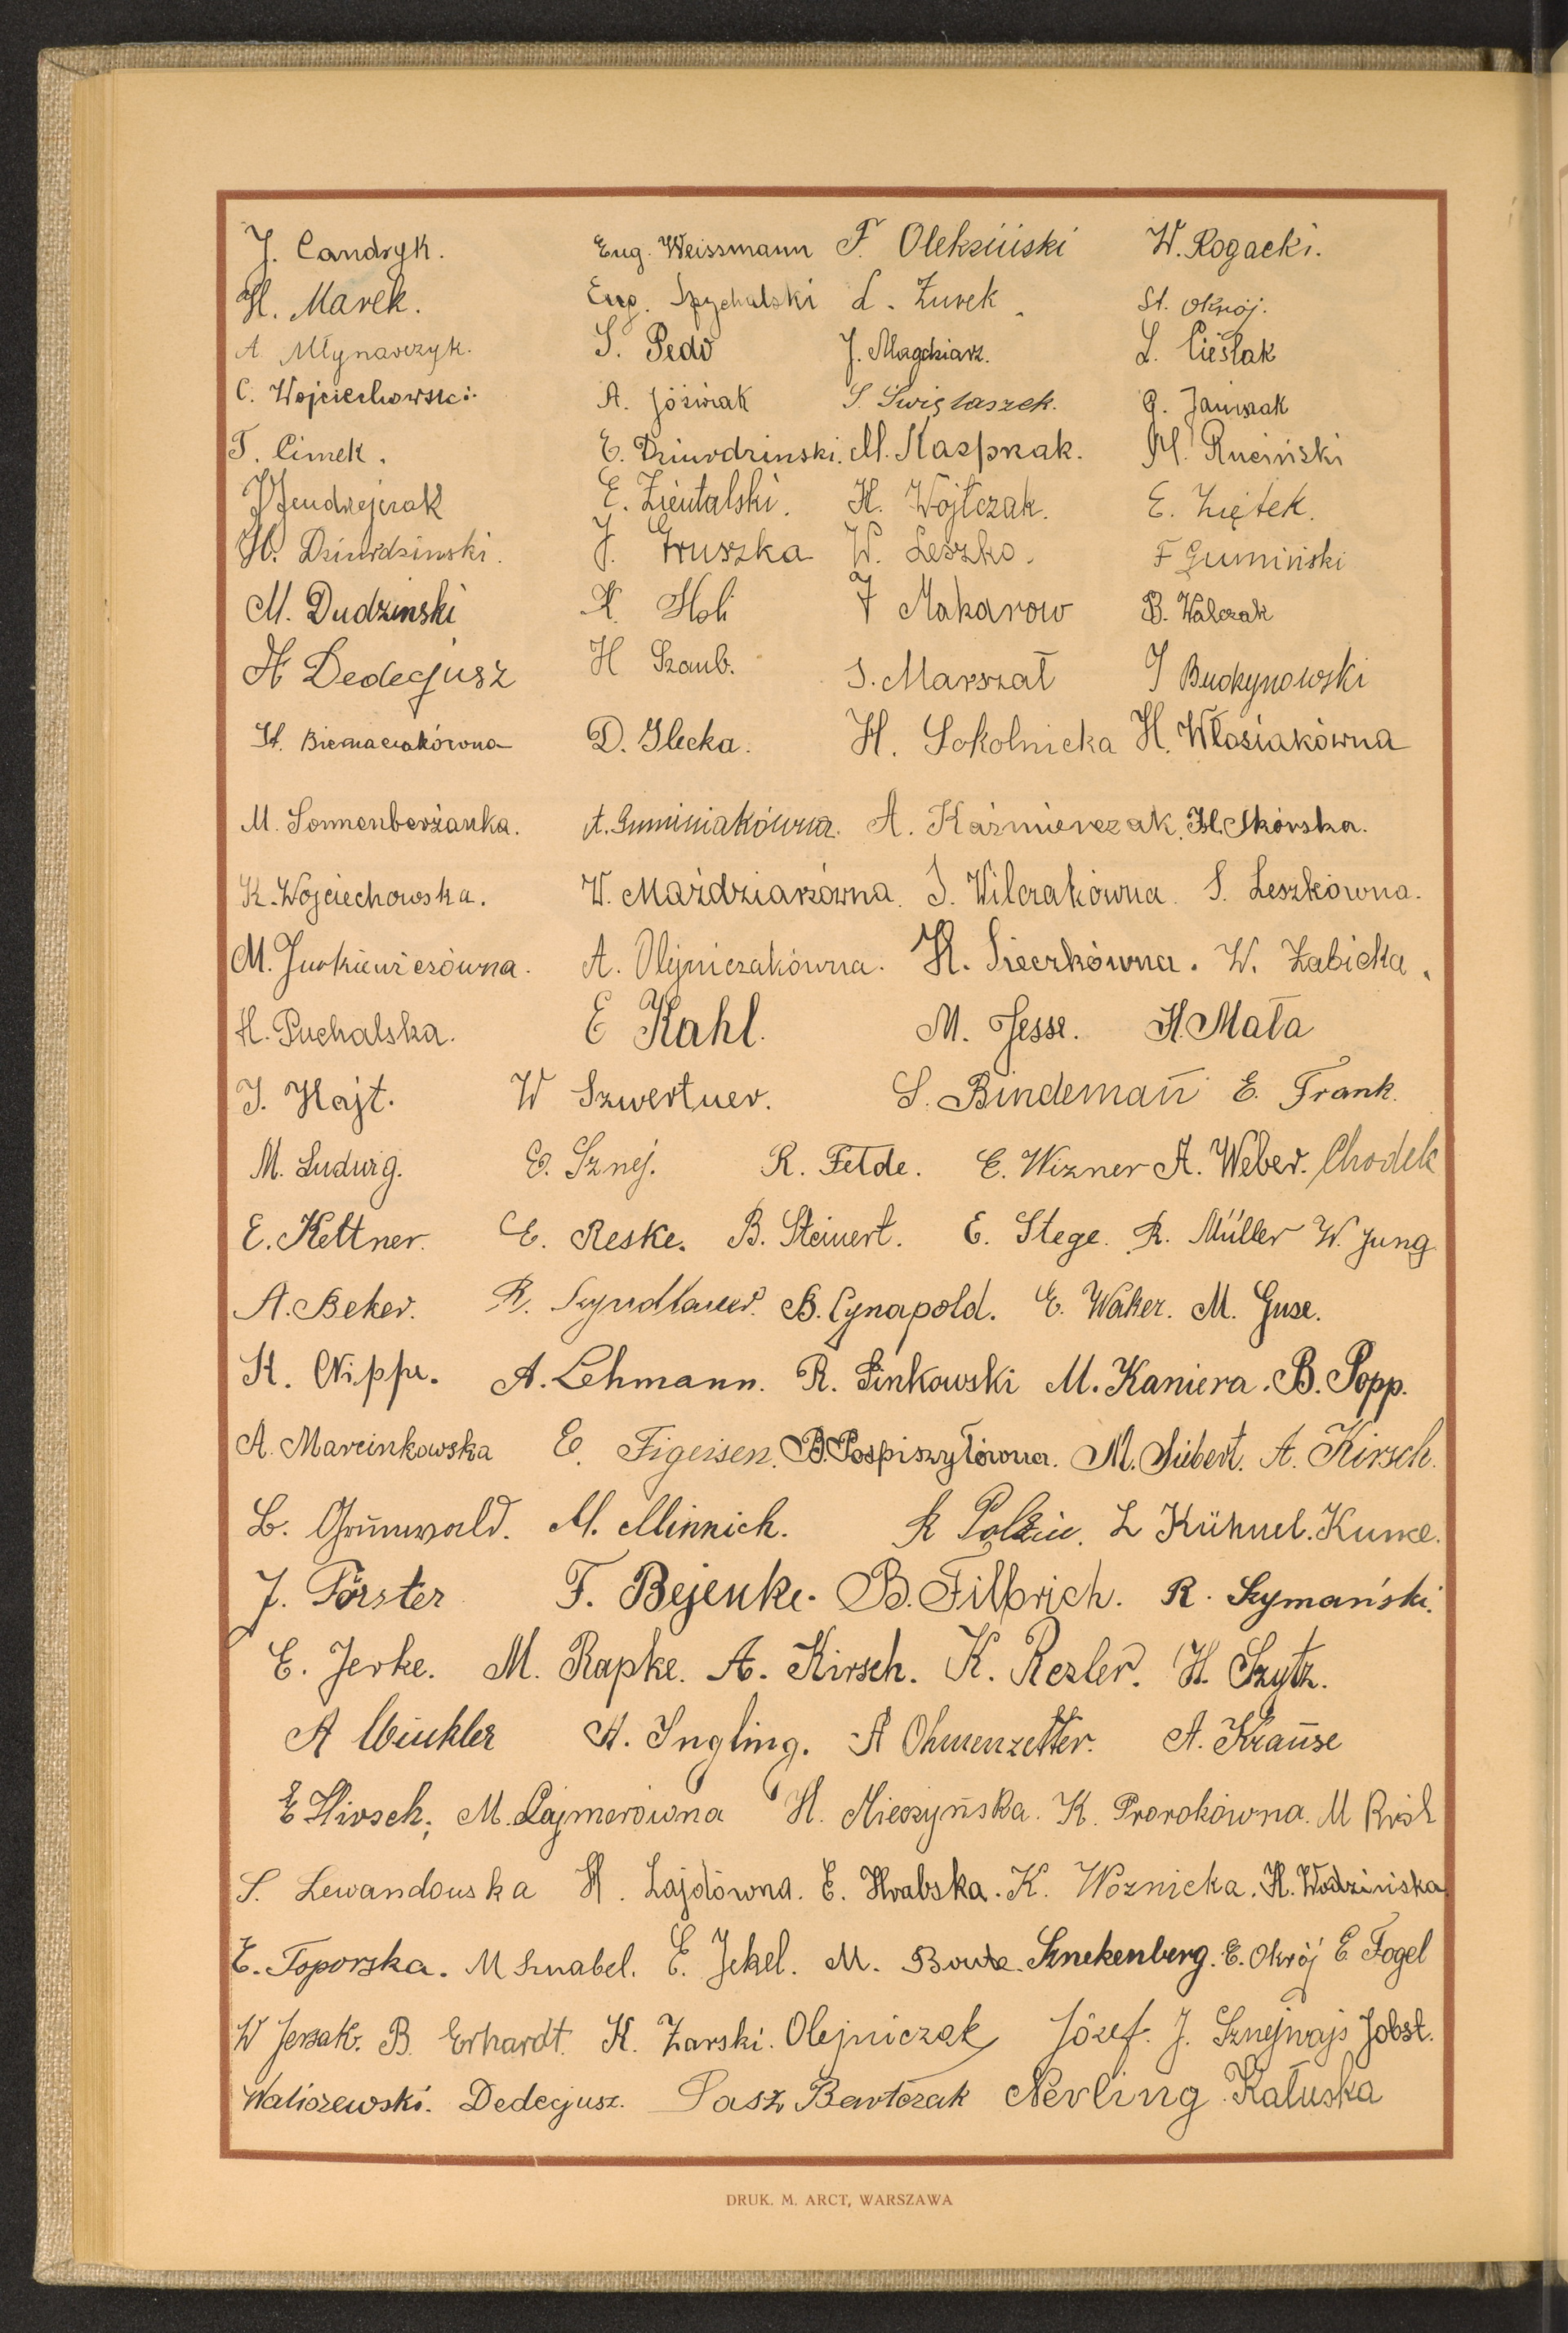 J. Candryk. Eug. Weissmann F. Oleksiński W. Rogacki.
H. Marek. Eug. Spychalski L. Żurek. St. Okrój.
A. Młynarczyk. S. Pedo J. Magdziarz. L. Cieślak
C. Wojciechowski. A. Jóźwiak S. Świętaszek. G. Janiszak
T. Cimek. E. Dziurdzinski. M. Kasprzak. M. Ruciński
J. Jendrzejczak E. Zientalski. H. Wojtczak. E. Ziętek.
H. Dziurdzinski. J. Gruszka W. Leszko. F Gumiński
M. Dudzinski K. Holi F Makarow B. Walczak
H Dedecjusz H Szaub. S. Marszał J Budzynowski
H. Biernaciakówna D. Ilecka. H. Sokolnicka H. Włosiakówna
M. Sonnenberżanka. A. Guminiakówna. A. Kaźmierczak. H. Skórska.
K. Wojciechowska. W. Maździarzówna. J. Wilczakówna. S. Leszkówna.
M. Jurkiewiczówna. A. Olejniczakówna. H. Sieczkówna. W. Żabicka.
H. Puchalska. E Kahl. M. Jesse. H. Mała
J. Hajt. W Szwertner. S. Bindemañ E. Frank.
M. Ludwig. E. Sznej. R. Felde. E. Wizner A. Weber. Chodek
E. Kettner. E. Reske. B. Steinert. E. Stege. R. Müller W. Jung
A. Beker. R. Szyndlauer. B. Cynapold. E. Waker. M. Guse.
H. Nippe. A. Lehmann. R. Sinkowski M. Kaniera. B. Popp.
A. Marcinkowska E. Figeisen. B. Pospiszylówna. M. Siebert. A. Kirsch.
L. Grünwald. M. Minnich. R Polzin. L Kühnel. Kunce.
J. Förster F. Bejenke. B. Filbrich. R. Szymański.
E. Jerke. M. Rapke. A. Kirsch. K. Rezler. H. Szytz.
A Winkler H. Ingling. A Ohmenzetter. A. Krause
E Hirsch. M. Lajmerówna H. Mieczyńska. K. Prorokówna. M
S. Lewandowska H. Lajdówna. E. Hrabska. K. Woźnicka. H. Wodzińska
E. Toporska. M Sznabel. E. Jekel. M. Sznekenberg. E. Okrój E Fogel
W Jerzak. B. Erhardt. K. Żarski. Olejniczak Józef. J. Sznejwajs Jobst.
Waliszewski. Dedecjusz. Pasz Bartczak Nerling Kałuska
DRUK. M. ARCT, WARSZAWA